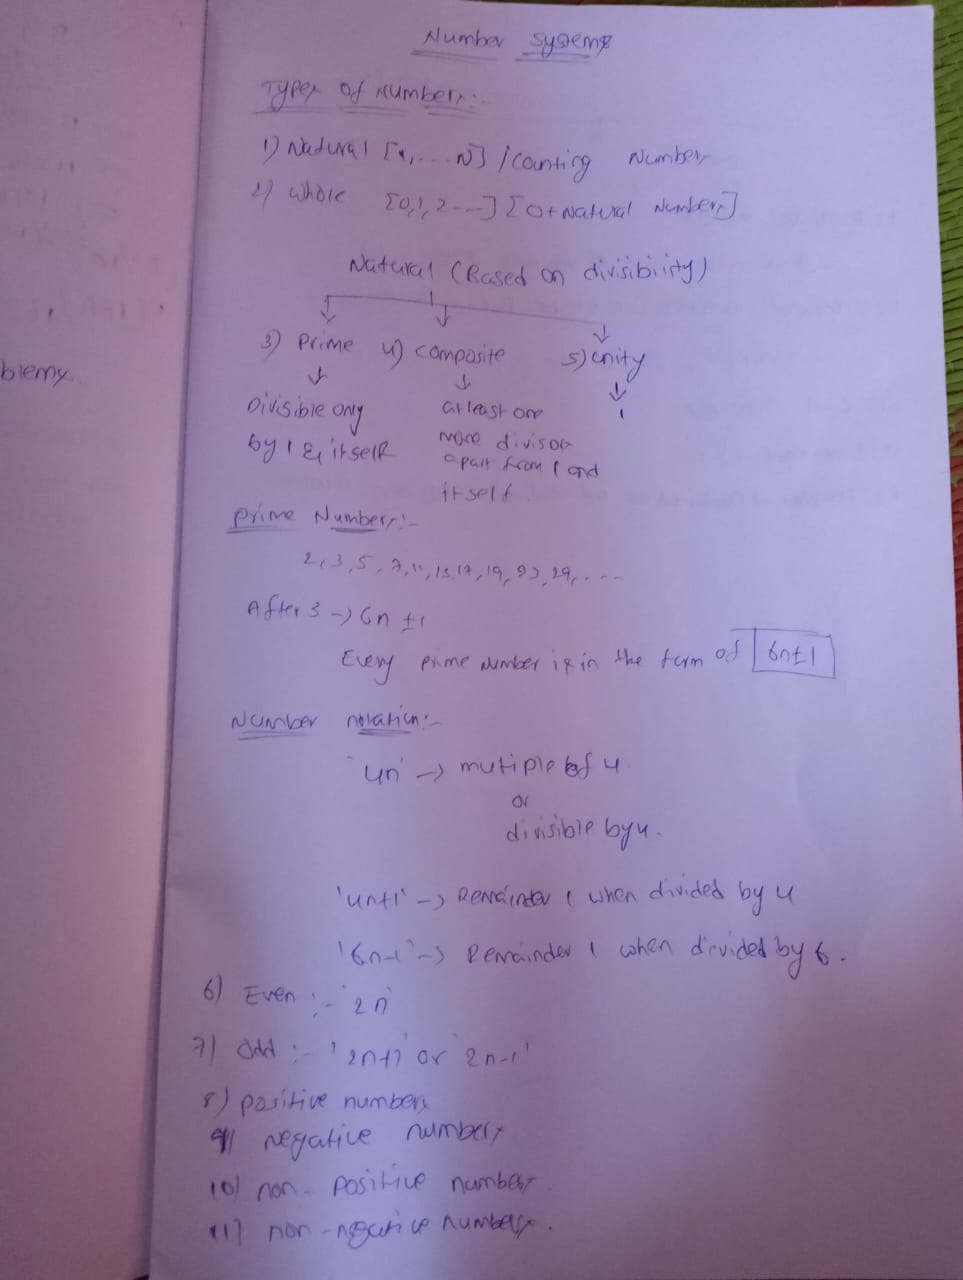 Number Systems
Types of Numbers:-
1) Natural [1, ... N] / Counting Numbers
2) Whole [0,1,2---] [0+Natural Numbers]
Natural (Based on divisibility)
3) Prime 4) Composite 5) Unity
Divisible only
by 1 & itself
at least one
more divisor
apart from 1 and
itself.
1
Prime Numbers:-
2,3,5,7,11,13,17,19,23,29,....
After 3 -> 6n ±1
Every prime number is in the form of 6n±1
Number notation:-
'4n' -> mutiple of 4
or
divisible by 4.
'4n+1' -> Remainder 1 when divided by 4
'6n-1' -> Remainder 1 when divided by 6.
6) Even :- '2n'
7) Odd :- '2n+1' or '2n-1'
8) positive numbers
9) Negative numbers
10) non-positive numbers.
11) non-negative numbers.
blems